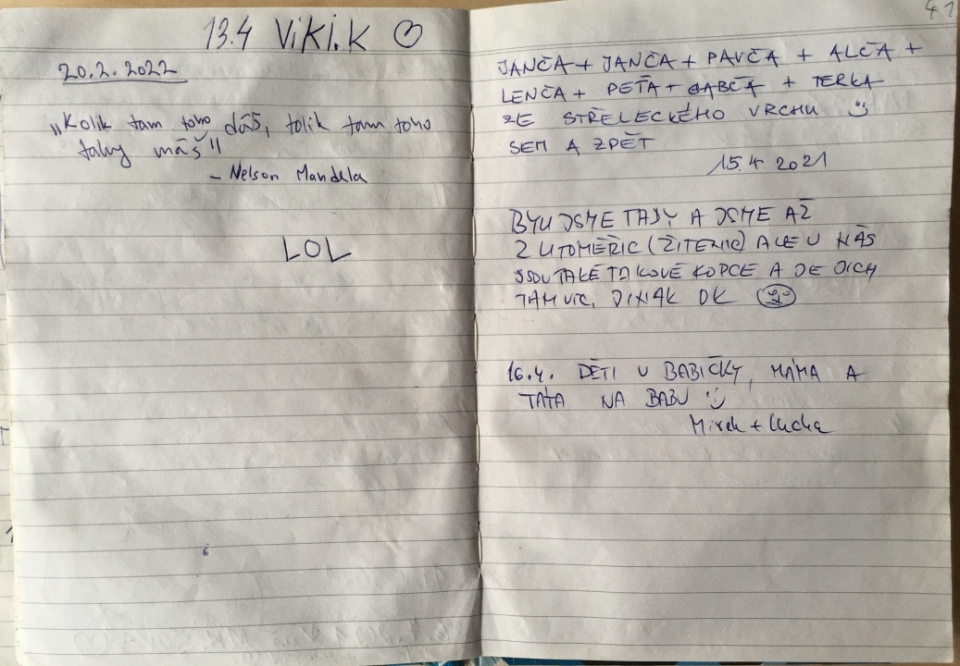 13.4 ViKi.K ♡
20.2.2022
„Kolik tam toho dáš, tolik tam toho
taky máš"
- Nelson Mandela
LOL
41
JANČA + JANČA + PAVČA + ALČA +
LENČA + PEŤA + GABČA + TERKA
ZE STŘELECKÉHO VRCHU
SEM A ZPĚT
15.4. 2021
BYLI JSME TADY A JSME AŽ
Z LITOMĚŘIC (ŽITENIC) ALE U NÁS
JSOU TAKÉ TAKOVÉ KOPCE A JE JICH
TAM VÍC, JINAK OK
16.4. DĚTI U BABIČKY, MÁMA A
TÁTA NA BABU
Mirek + Lucka